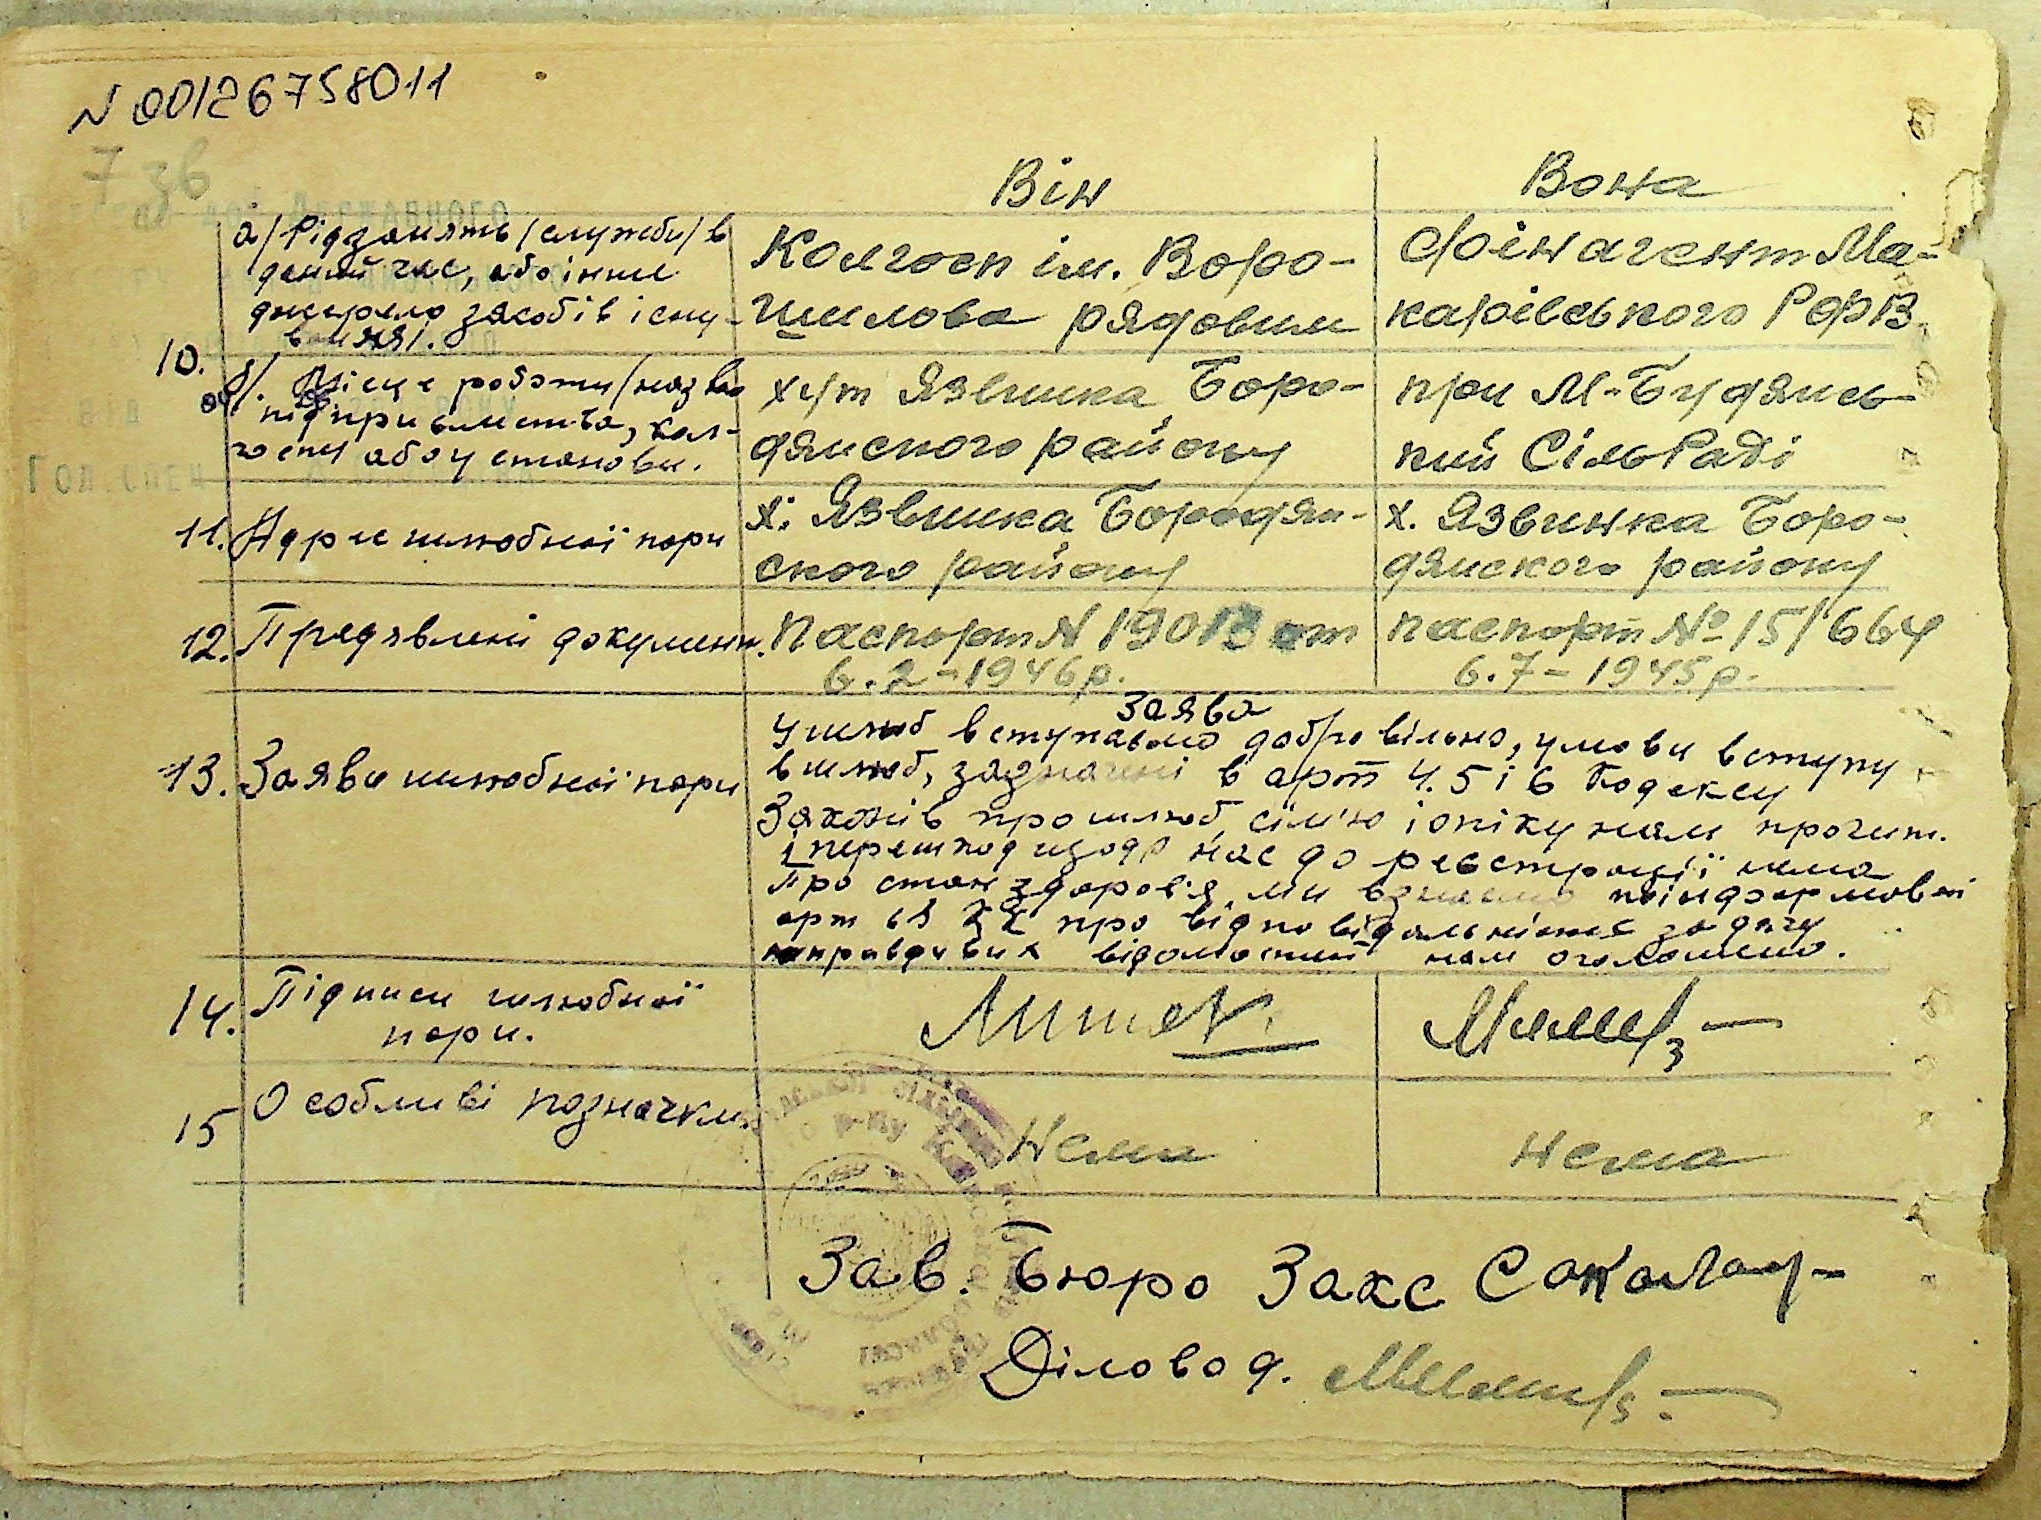 N 00126758011
7 зв
Він
Вона
а/ Рід занять /служби/ в
даний час, або інше
джерело засобів існу-
вання/.
Колгосп ім. Воро-
шилова рядовим
Фінагент Ма-
карівського РФВ
10.
б/. Місце роботи /назва
підприємства, кол-
госпу або установи.
хут Язвинка Боро-
дянского району
при М-Будянсь-
кий СільРаді
11. Адрес шлюбної пари
х. Язвинка Бородян-
ского району
х. Язвинка Боро-
дянского району
12. Предявлені документ.
Паспорт N 19013 от
6.2-1946р.
паспорт № 15/664
6.7-1945р.
13. Заяви шлюбної пари
Заява
У шлюб вступаємо добровільно, умови вступу
в шлюб, зазначені в арт 4.5 і 6 Кодексу
Законів про шлюб, сім'ю і опіку нам прочит.
і перешкод щодо нас до реєстрації нема
Про стан здоров'я ми взаємно поінформовані
арт 68 КК про відповідальність за дачу
неправдивих відомостей нам оголошено.
14. Підписи шлюбної
пари.
15 Особливі позначки
Нема
нема
Зав. Бюро Закс
Діловод.